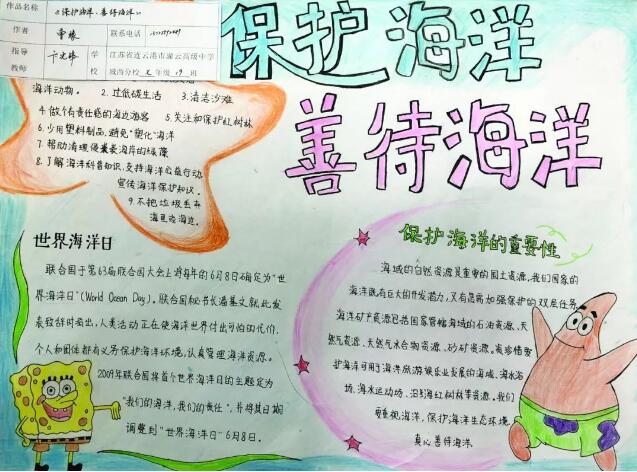 作品名称 《保护海洋、善待海洋》
作者
联系电话
指导教师
学校 江苏省连云港市灌云高级中学
城西分校 七年级 19 班
保护海洋
善待海洋
海洋动物。 2. 过低碳生活 3. 清洁沙滩
4. 做个有责任感的海边游客 5. 关注和保护红树林
6. 少用塑料制品，避免"塑化"海洋
7. 帮助清理侵袭海岸的绿藻
8. 了解海洋科普知识，支持海洋公益行动
宣传海洋保护知识。
9. 不把垃圾丢弃
海里或海边。
世界海洋日
联合国于第63届联合国大会上将每年的6月8日确定为"世
界海洋日"(World Ocean Day)。联合国秘书长潘基文就此发
表致辞时指出，人类活动正在使海洋世界付出可怕的代价，
个人和团体都有义务保护海洋环境，认真管理海洋资源。
2009年联合国将首个世界海洋日的主题定为
"我们的海洋，我们的责任"，并将其日期
调整到"世界海洋日"6月8日。
保护海洋的重要性
海域的自然资源是重要的国土资源，我们国家的
海洋既有巨大的开发潜力，又有急需加强保护的双层任务
海洋矿产资源包括国家管辖海域的石油资源、天
然气资源、天然气水合物资源、砂矿资源。要珍惜爱
护海洋可用于海洋旅游娱乐业发展的海域、海水浴
场、海水运动场、沿海红树林等资源。我们
要重视海洋，保护海洋生态环境
真心善待海洋